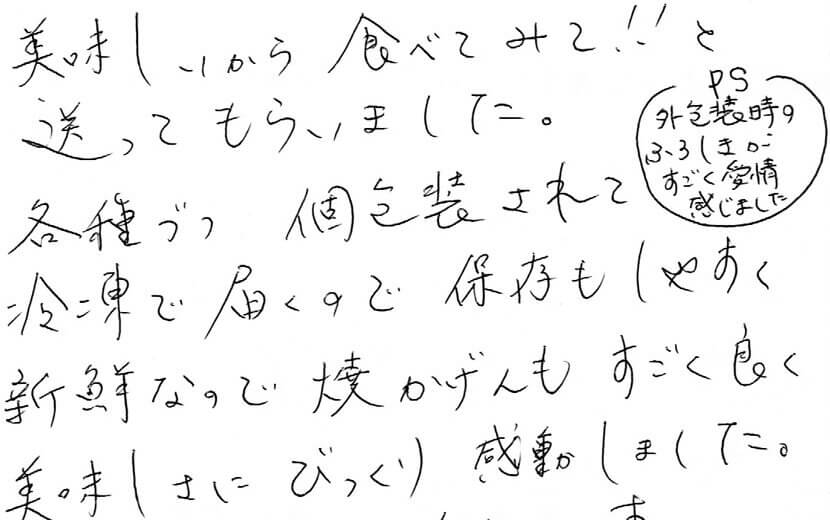 美味しいから 食べてみて!!と
送ってもらいました。
各種づつ 個包装されて
冷凍で届くので 保存もしやすく
新鮮なので 焼かげんもすごく良く
美味しさに びっくり 感動しました。
PS
外包装時の
ふろしきが
すごく愛情
感じました